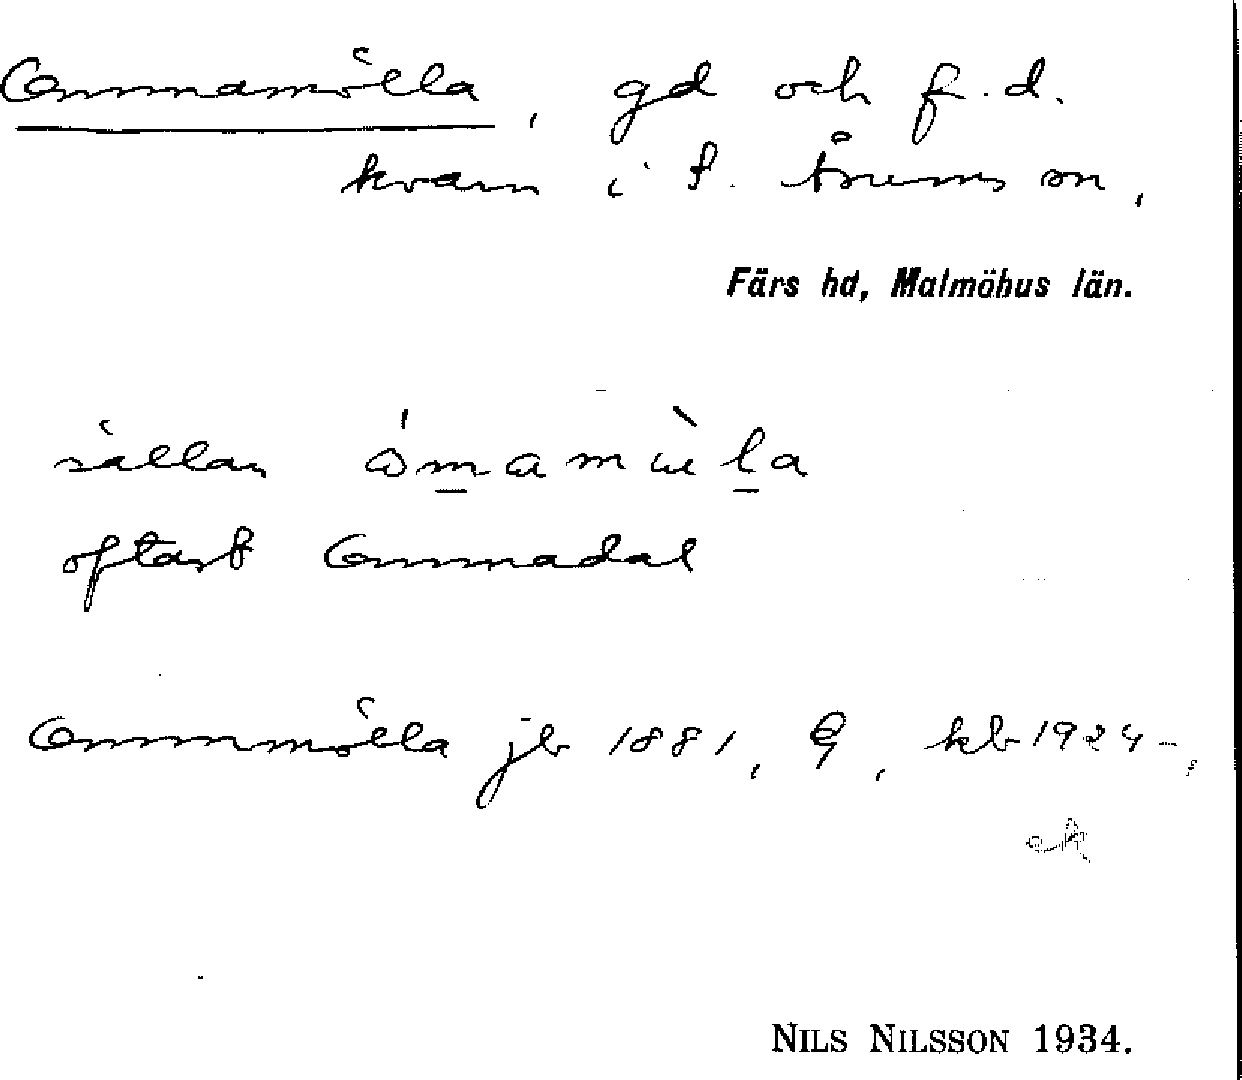 Ommamölla, gd och f.d.
kvarn i S. Åsums sn,
Färs hd, Malmöhus län.
sällan
oftast Ommadal
Ommmölla jb 1881, G, kb 1924-,
ek
NILS NILSSON 1934.